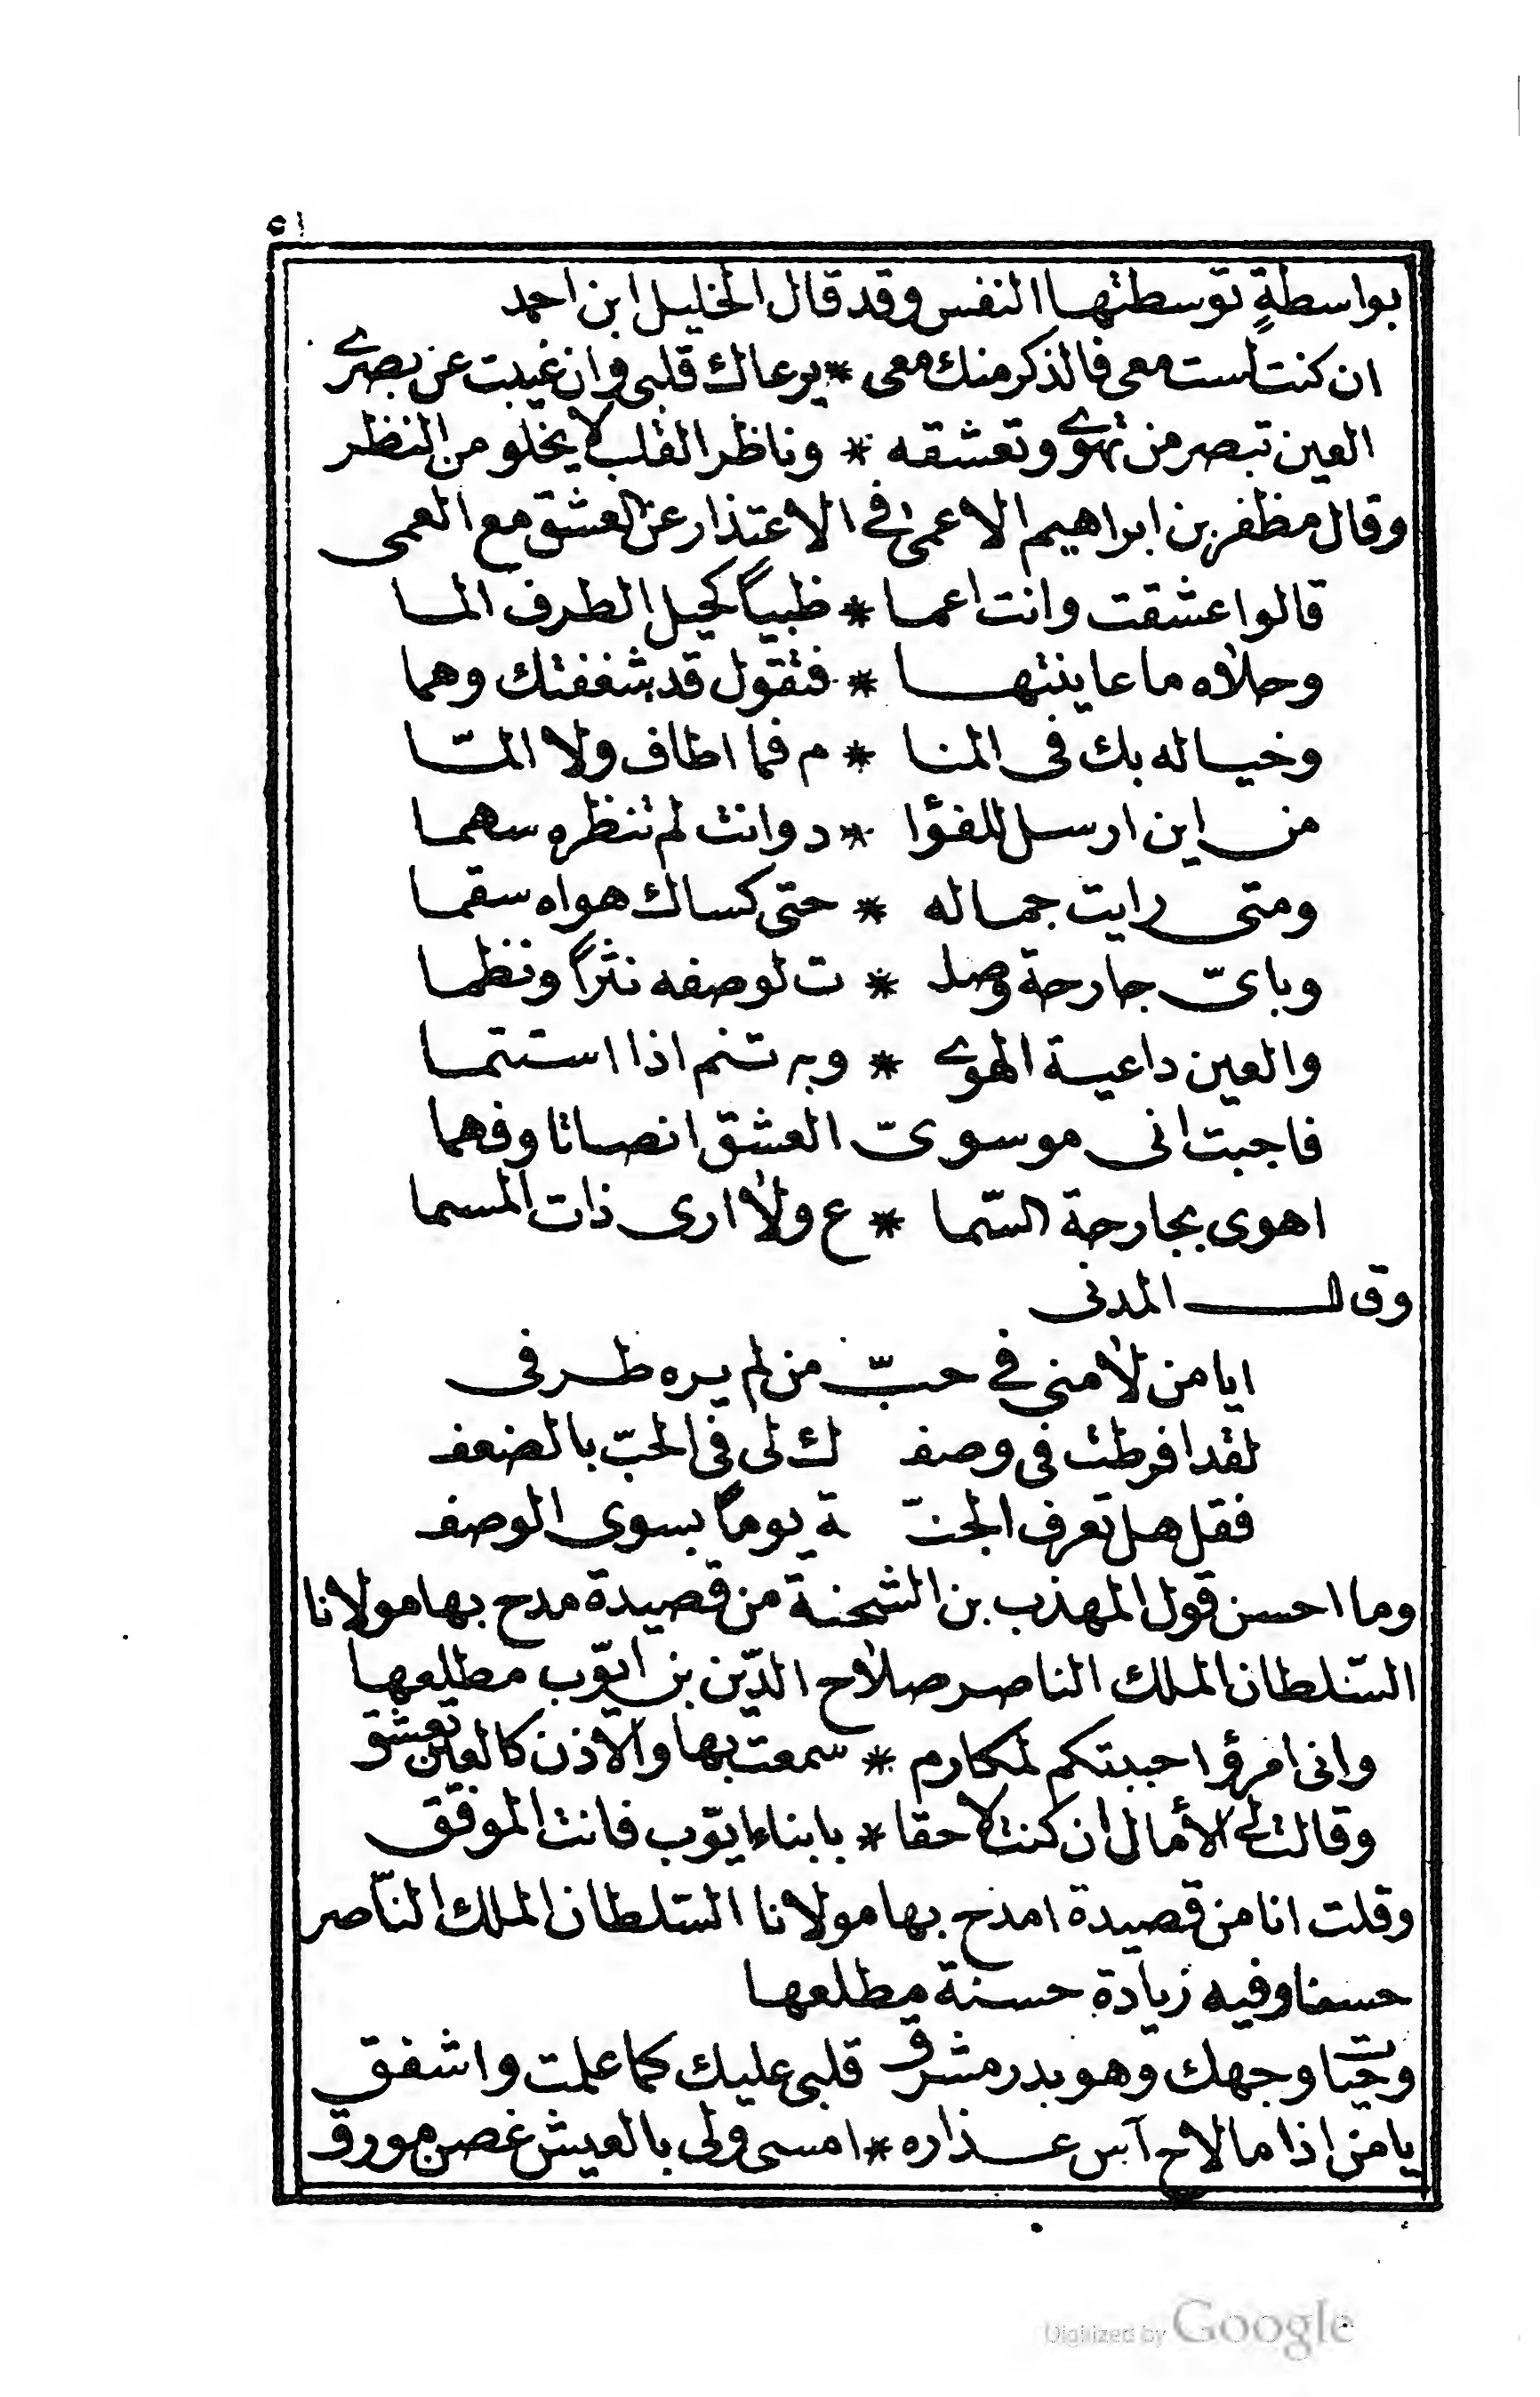 ٥١
بواسطةٍ توسطتها النفس وقد قال الخليل ابن احمد
ان كنت لست معى فالذكر منك معى * يرعاك قلبى وان غيبت عن بصرے
العين تبصر من تهوے وتعشقه * وناظر القلب لا يخلو من النظر
وقال مظفر بن ابراهيم الاعمى فے الاعتذار عن العشق مع العمى
قالوا عشقت وانت اعما * ظبياً كحيل الطرف الما
وحلاه ما عاينتها * فتقول قد شغفتك وهما
وخياله بك فى المنا * م فما اطاف ولا المّا
من اين ارسل للفؤا * د وانت لم تنظره سهما
ومتى رايت جماله * حتى كساك هواه سقما
وباىّ جارحة وصلـ * ت لوصفه نثراً ونظما
والعين داعية الهوے * وبه تنم اذا استتما
فاجبت انى موسوىّ العشق انصاتا وفهما
اهوى بجارحة السّما * ع ولا ارى ذات المسما
وقال المدنى
ايا من لامنى فے حبّ من لم يره طرفى
لقد افرطت فى وصفـ ك لى فى الحبّ بالضعف
فقل هل تعرف الجنّـ ـة يوماً بسوى الوصف
وما احسن قول المهذب بن الشحنة من قصيدة مدح بها مولانا
السّلطان الملك الناصر صلاح الدّين بن ايّوب مطلعها
وانى امرؤ احببتكم لمكارم * سمعت بها والاذن كالعين تعشق
وقالت لے الأمال ان كنت لاحقا * بابناء ايّوب فانت الموفّق
وقلت انا من قصيدة امدح بها مولانا السّلطان الملك النّاصر
حسنا وفيه زيادة حسنة مطلعها
وحيا وجهك وهو بدر مشرق قلبى عليك كما علمت واشفق
يا من اذا ما لاح آس عذاره * امسى ولى بالعيش غصن مورق
Digitized by Google